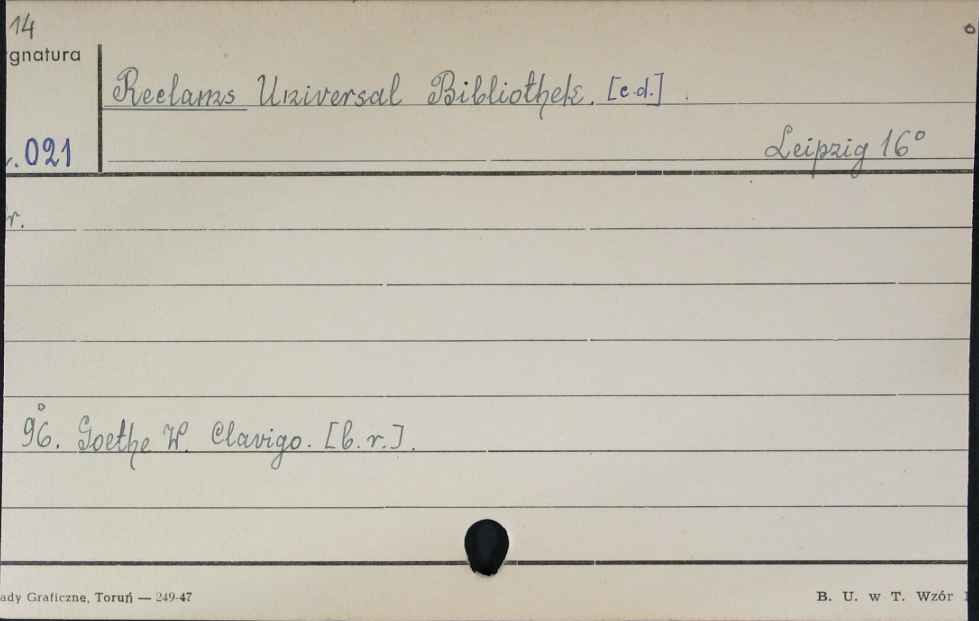 14
gnatura
Reclams Universal Bibliothek. [c.d.].
.021
Leipzig 16°
r.
96. Goethe W. Clavigo. [b.r.].
ady Graficzne, Toruń — 249-47
B. U. w T. Wzór